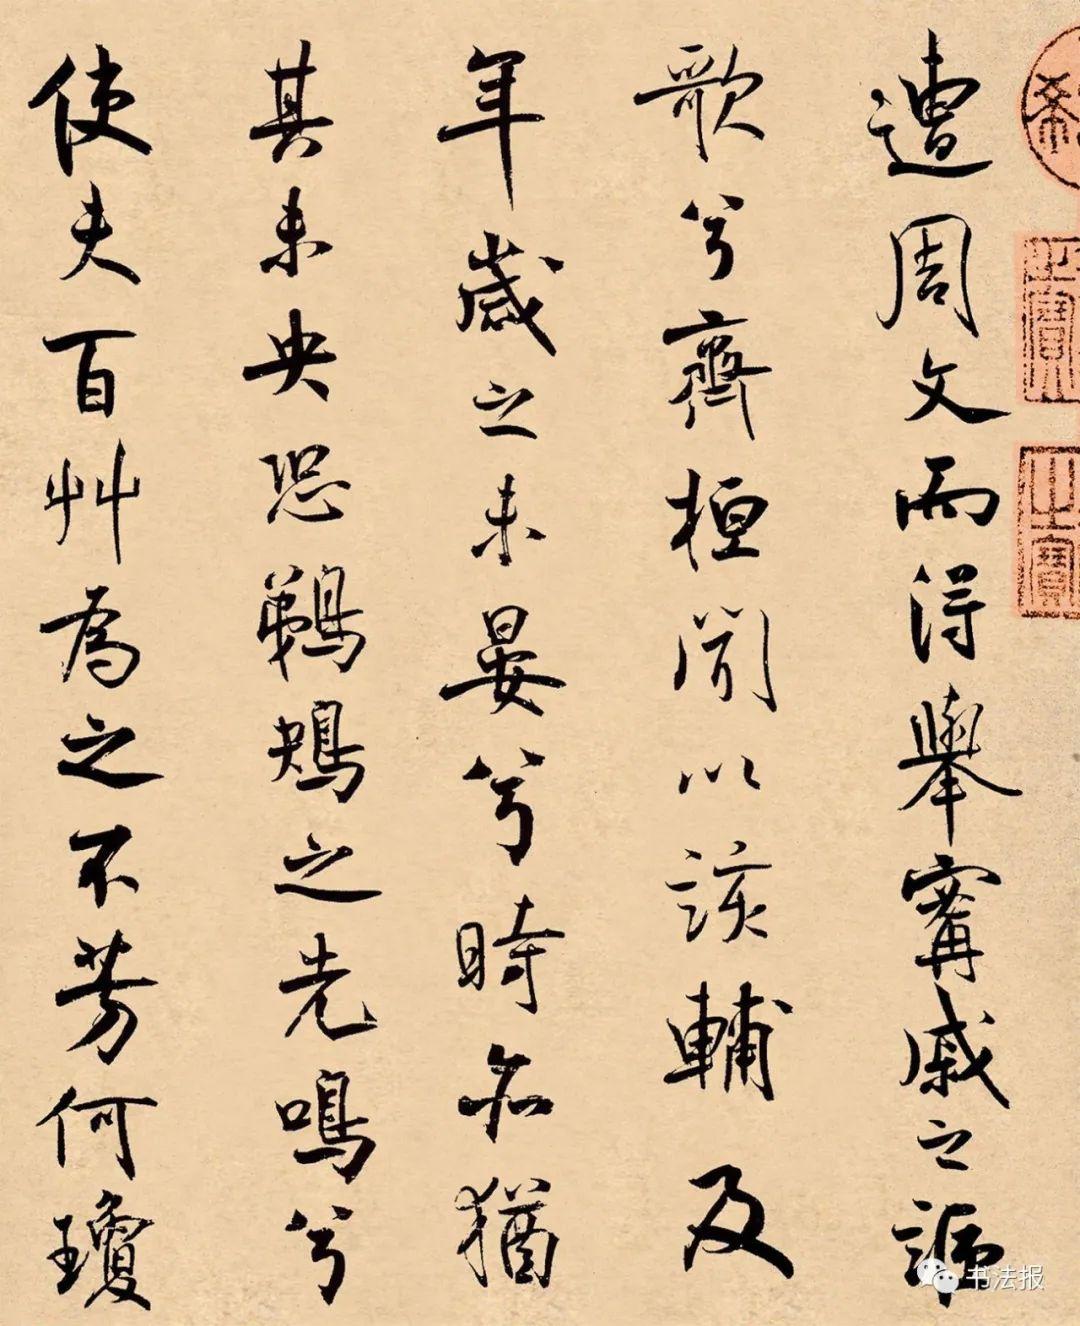 遭周文而得舉甯戚之謳
歌兮齊桓聞以該輔及
年歲之未晏兮時亦猶
其未央恐鵜鴂之先鳴兮
使夫百艸為之不芳何瓊
之寶
书法报